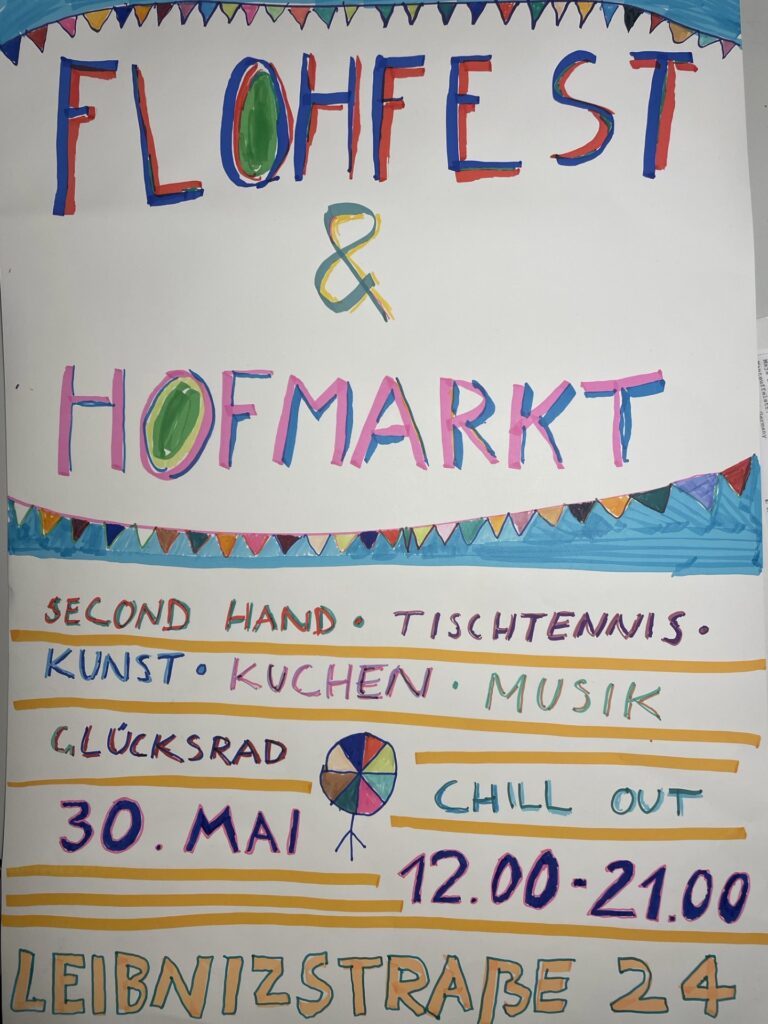 FLOHFEST
&
HOFMARKT
SECOND HAND · TISCHTENNIS ·
KUNST · KUCHEN · MUSIK
GLÜCKSRAD
CHILL OUT
30. MAI
12.00-21.00
LEIBNIZSTRAßE 24